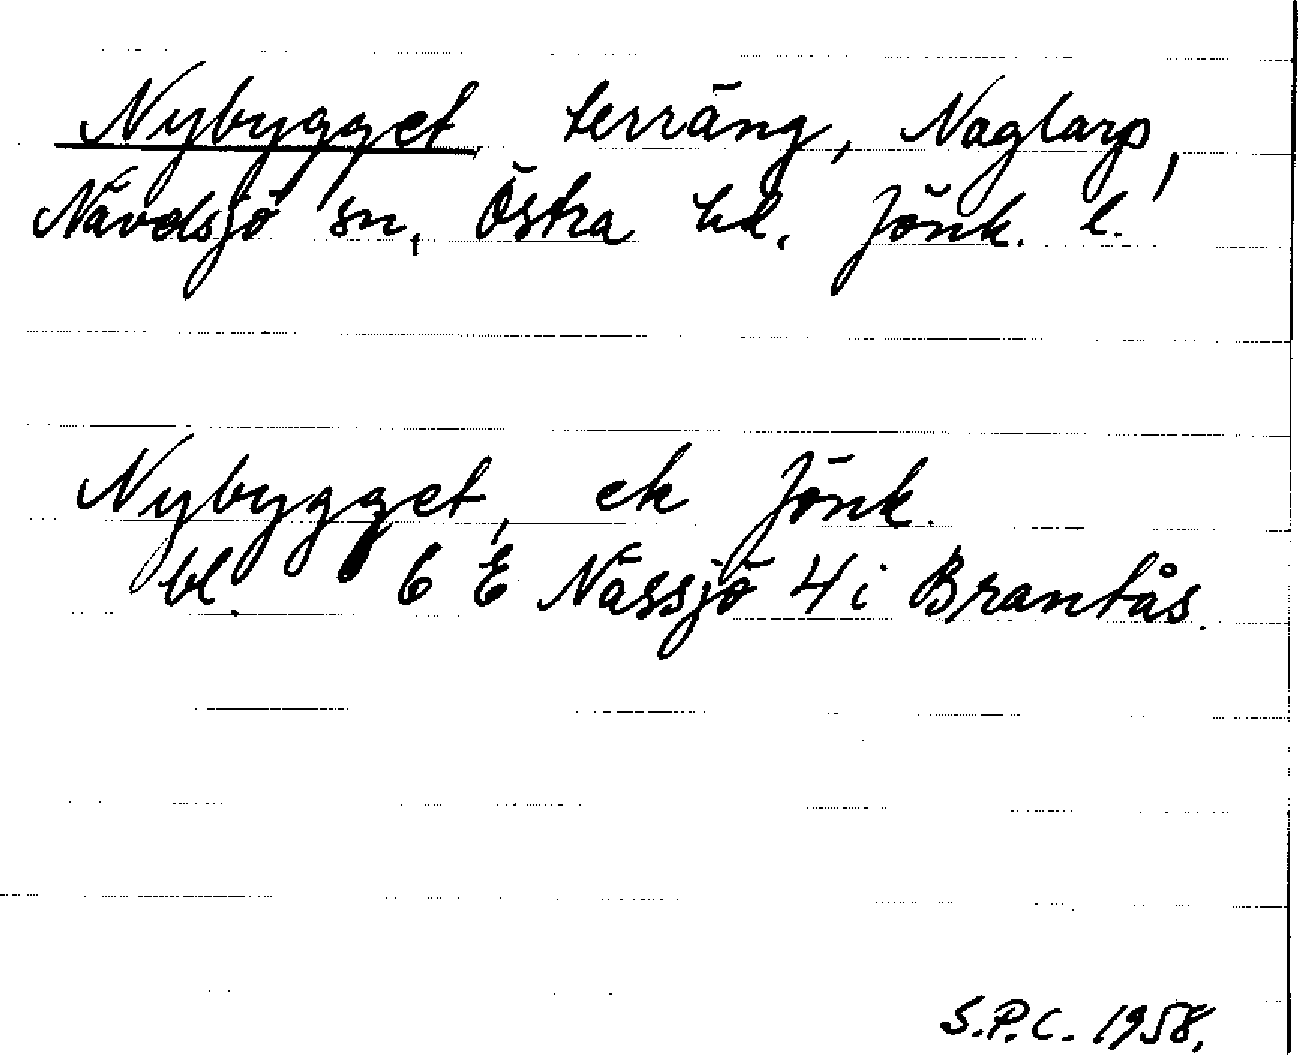 Nybygget terräng, Naglarp,
Nävelsjö sn, Östra hd, Jönk. l.
Nybygget, ek Jönk.
bl. 6 E Nässjö 4 i Brantås.
S.P.C. 1958.